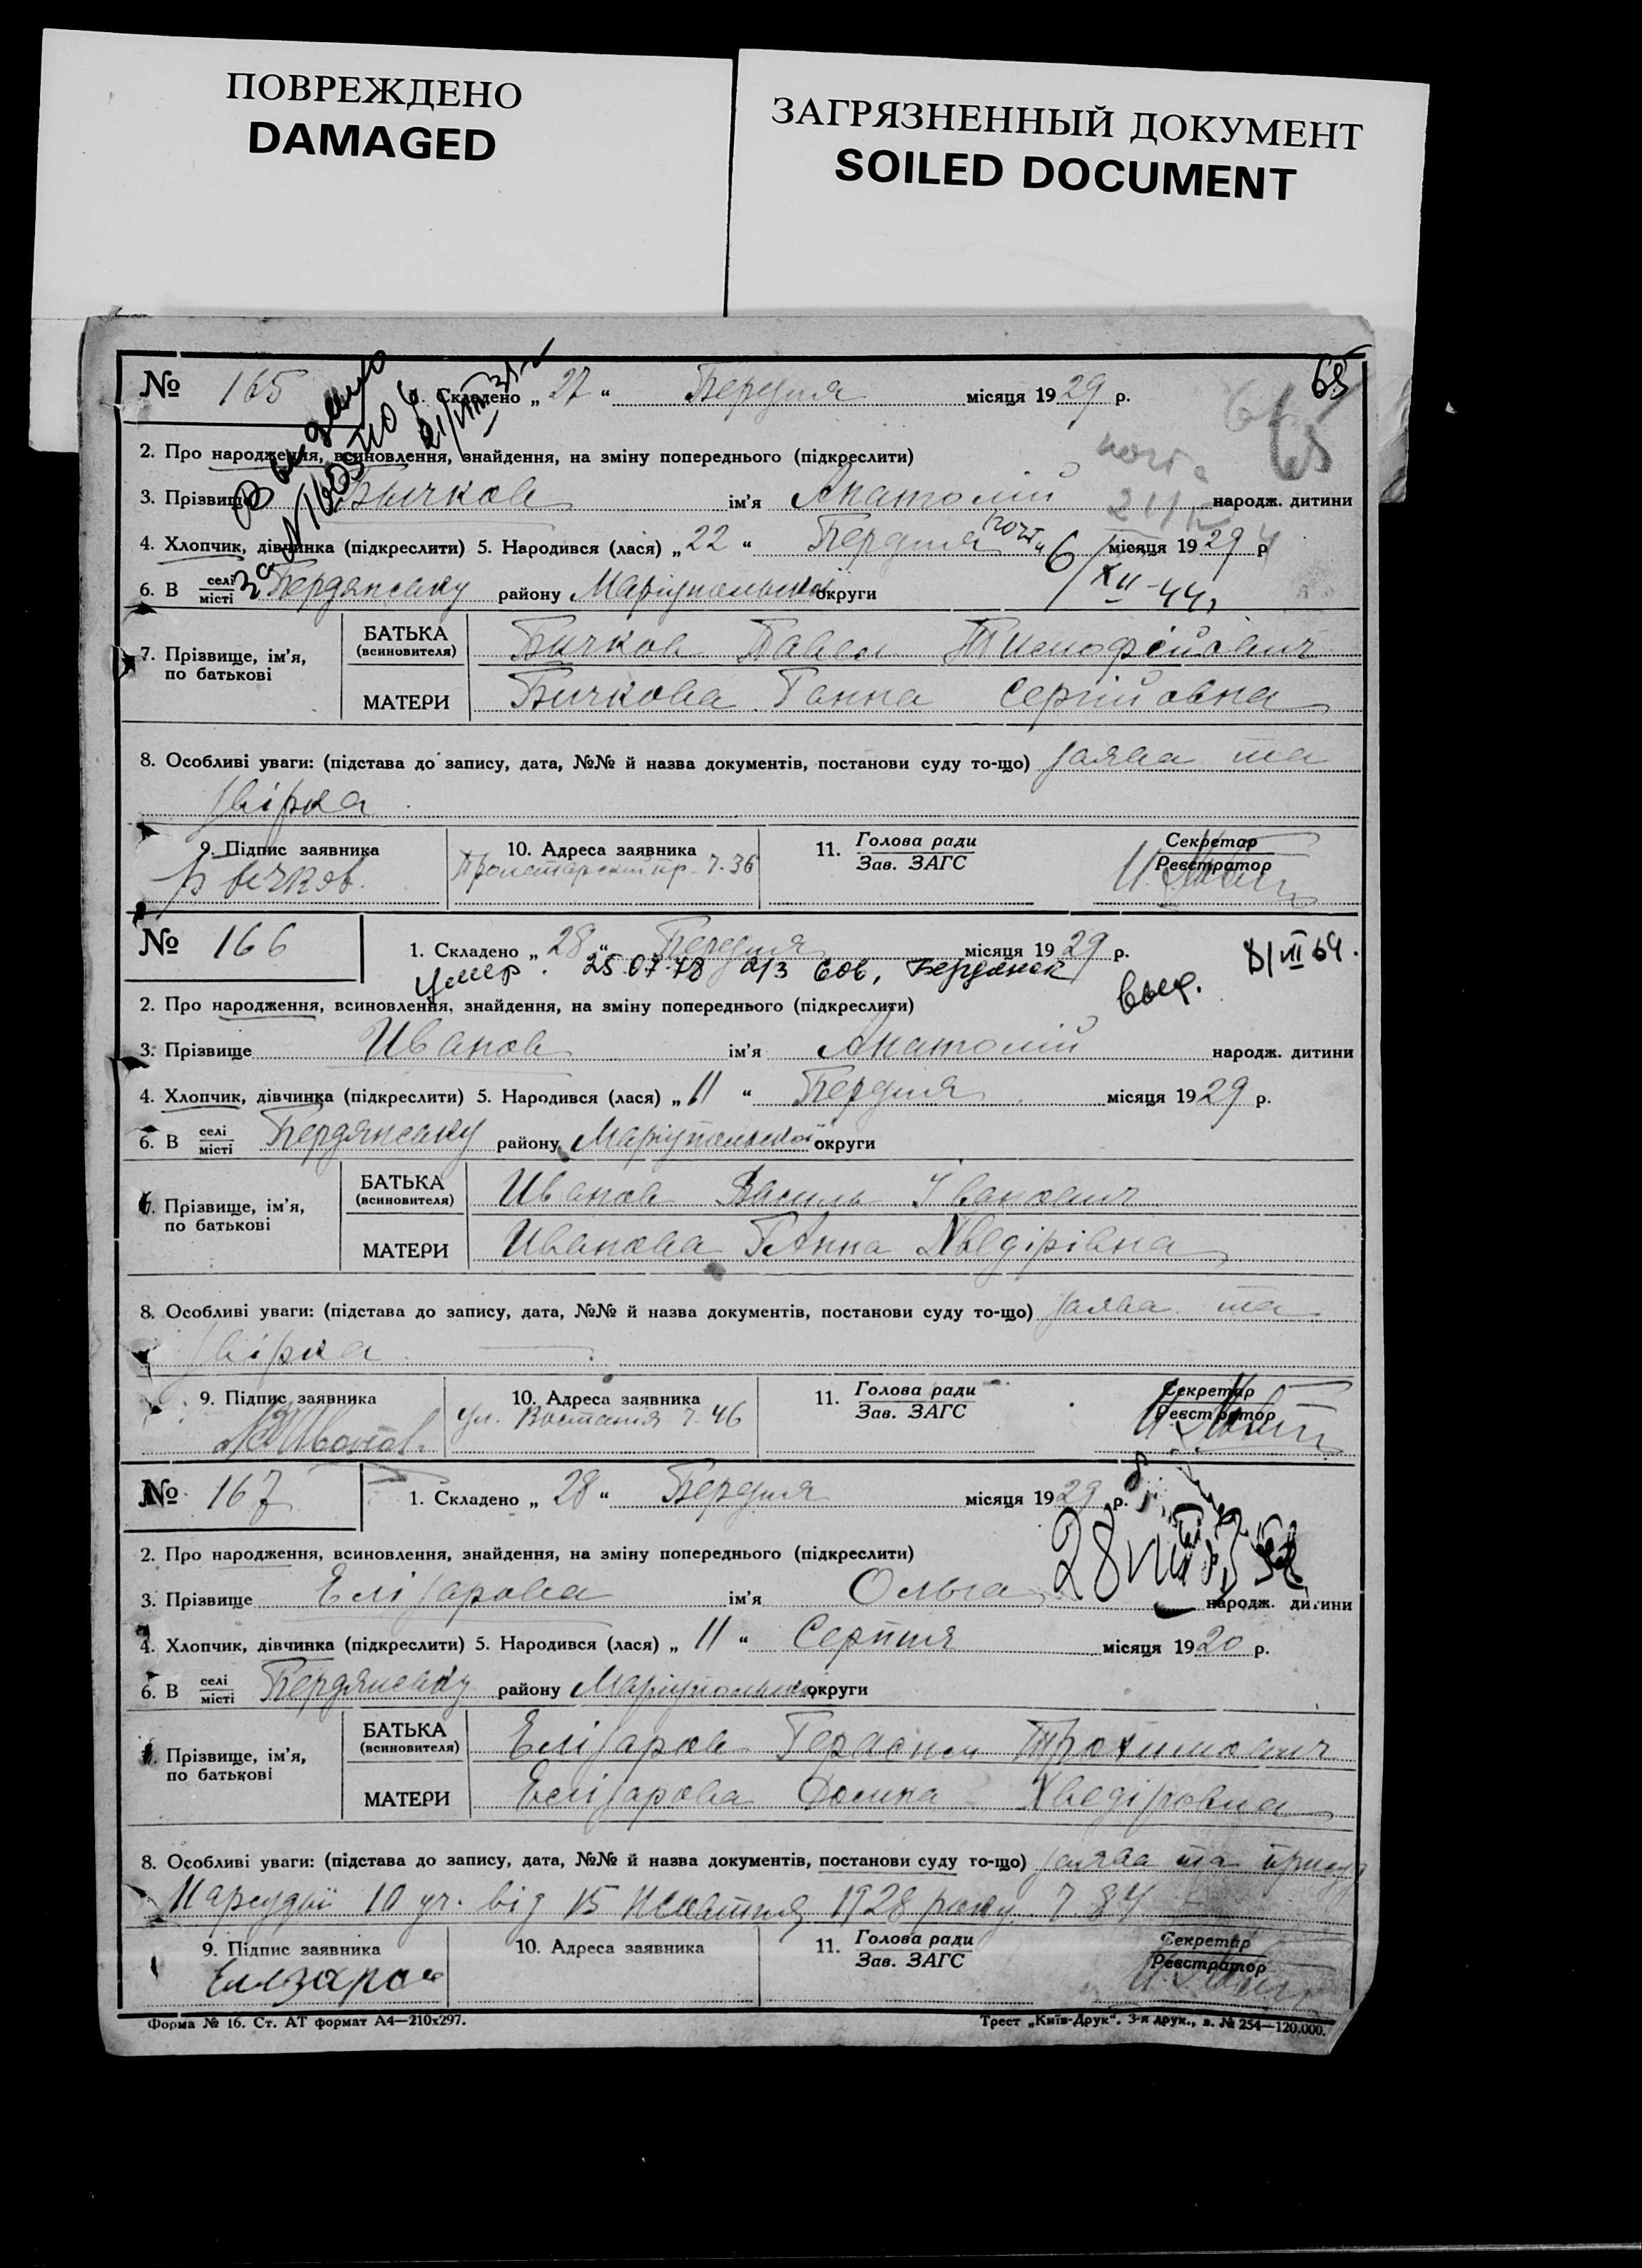 ПОВРЕЖДЕНО
DAMAGED
ЗАГРЯЗНЕННЫЙ ДОКУМЕНТ
SOILED DOCUMENT
65
№ 165 1. Складено „ 27 “ Березня місяця 1929 р.
65
2. Про народження, всиновлення, знайдення, на зміну попереднього (підкреслити)
3. Прізвище Бычков ім'я Анатолій народж. дитини
4. Хлопчик, дівчинка (підкреслити) 5. Народився (лася) „ 22 “ Березня місяця 1929 р.
6/XII-44
6. В селі/місті Бердянську району Маріупольської округи
7. Прізвище, ім'я, по батькові
БАТЬКА (всиновителя) Бичков Павел
МАТЕРИ Бичкова Ганна Сергійовна
8. Особливі уваги: (підстава до запису, дата, №№ й назва документів, постанови суду то-що) заява та
звірка
9. Підпис заявника 10. Адреса заявника 11. Голова ради/Зав. ЗАГС Секретар/Реєстратор
Бычков. Пролетарский пр. ч. 36
№ 166 1. Складено „ 28 “ Березня місяця 1929 р.
умер. 25.07.78 а/з 606, Бердянск
выд.
2. Про народження, всиновлення, знайдення, на зміну попереднього (підкреслити)
3. Прізвище Иванов ім'я Анатолій народж. дитини
4. Хлопчик, дівчинка (підкреслити) 5. Народився (лася) „ 11 “ Березня місяця 1929 р.
6. В селі/місті Бердянську району Маріупольської округи
7. Прізвище, ім'я, по батькові
БАТЬКА (всиновителя) Иванов Василь Іванович
МАТЕРИ Иванова Ганна Хведірівна
8. Особливі уваги: (підстава до запису, дата, №№ й назва документів, постанови суду то-що) заява та
звірка
9. Підпис заявника 10. Адреса заявника 11. Голова ради/Зав. ЗАГС Секретар/Реєстратор
Иванов. ул. Востания ч. 46
№ 167 1. Складено „ 28 “ Березня місяця 1929 р.
2. Про народження, всиновлення, знайдення, на зміну попереднього (підкреслити)
3. Прізвище Елізарова ім'я Ольга народж. дитини
4. Хлопчик, дівчинка (підкреслити) 5. Народився (лася) „ 11 “ Серпня місяця 1920 р.
6. В селі/місті Бердянську району Маріупольської округи
7. Прізвище, ім'я, по батькові
БАТЬКА (всиновителя) Елізаров Герасим Трохимович
МАТЕРИ Елізарова Домна Хведіровна
8. Особливі уваги: (підстава до запису, дата, №№ й назва документів, постанови суду то-що) заява та присуд
Нарсудді 10 уч. від 15 Жовтня 1928 року ч. 84
9. Підпис заявника 10. Адреса заявника 11. Голова ради/Зав. ЗАГС Секретар/Реєстратор
Елзаров
Форма № 16. Ст. АТ формат А4—210х297.
Трест „Київ-Друк“. 3-я друк., з. № 254—120.000.